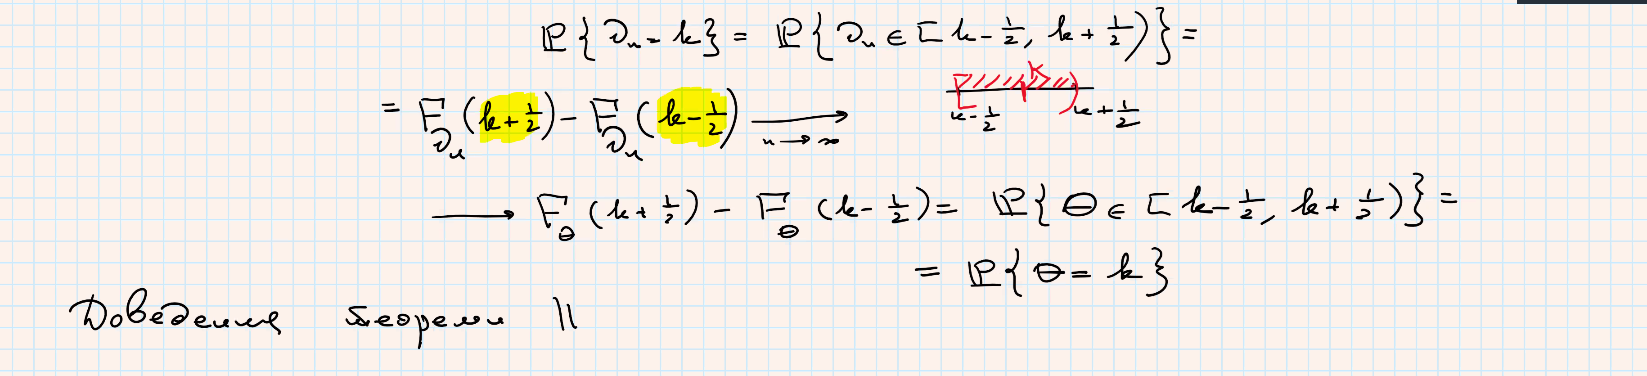 ℙ{ϑₙ = k} = ℙ{ϑₙ ∈ [k - 1/2, k + 1/2)} =
= F_ϑₙ(k + 1/2) - F_ϑₙ(k - 1/2) ⟶ n → ∞
[ k )
k - 1/2 k + 1/2
⟶ F_θ(k + 1/2) - F_θ(k - 1/2) = ℙ{θ ∈ [k - 1/2, k + 1/2)} =
= ℙ{θ = k}
Доведення теореми \\